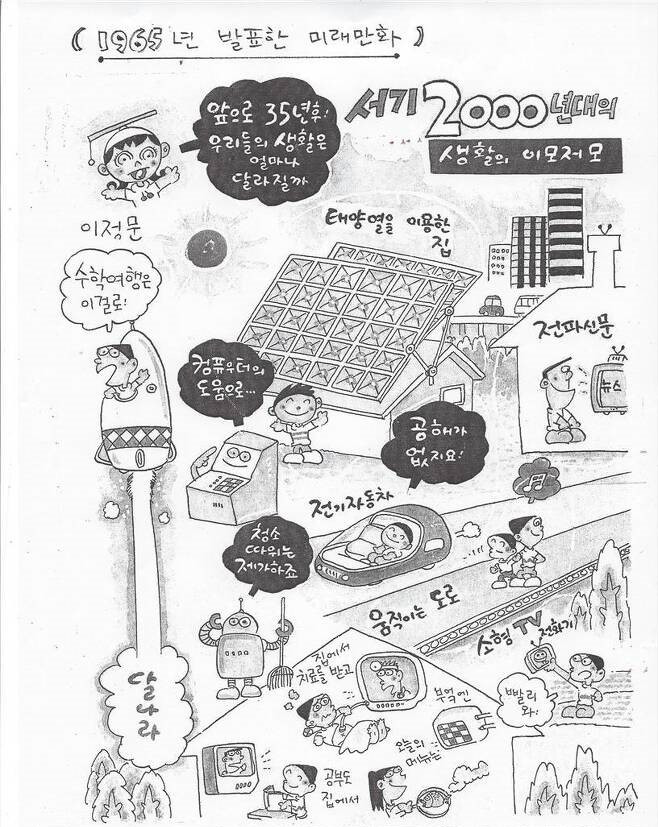 ( 1965년 발표한 미래만화 )
앞으로 35년후!
우리들의 생활은
얼마나
달라질까
서기 2000년대의
생활의 이모저모
이정문
태양열을 이용한
집
수학여행은
이걸로!
전파신문
뉴스
컴퓨우터의
도움으로...
공해가
없지요!
전기자동차
청소
따위는
제가하죠
움직이는 도로
소형 TV
전화기
달나라
집에서
치료를 받고
부엌에
빨리
와!
오늘의
메뉴는
공부도
집에서